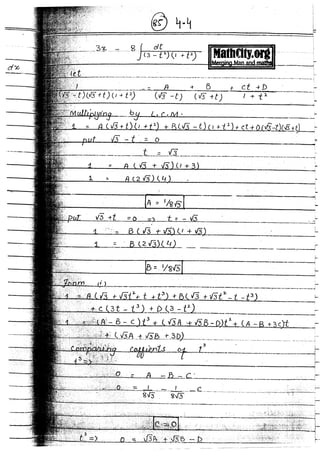 85 4-4
3x - 8 ∫ dt / (3 - t²)(1 + t²)
MathCity.org
Merging Man and maths
dx
let
1 / (√3 - t)(√3 + t)(1 + t²) = A / (√3 - t) + B / (√3 + t) + ct + D / 1 + t²
Multiplying by L.C.M.
1 = A(√3+t)(1+t²) + B(√3 - t)(1+t²) + ct + D(√3-t)(√3+t)
put √3 - t = 0
t = √3
1 = A(√3 + √3)(1+3)
1 = A(2√3)(4)
A = 1/8√3
put √3 + t = 0 => t = -√3
1 = B(√3 + √3)(1 + √3)
1 = B(2√3)(4)
B = 1/8√3
From (i)
1 = A(√3 + √3t² + t + t³) + B(√3 + √3t² - t - t³)
+ c(3t - t³) + D(3 - t²)
1 = (A - B - C)t³ + (√3A + √3B - D)t² + (A - B + 3c)t
+ (√3A + √3B + 3D)
Comparing cofficients of t³
t³ =>
0 = A - B - C
0 = 1/8√3 - 1/8√3 - C
C = 0
t² => 0 = √3A + √3B - D